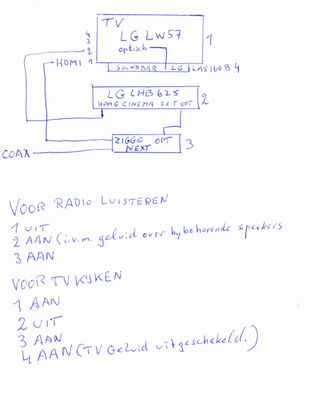 TV
LG LW57
optisch
1
4
3
2
HDMI 1
SOUNDBAR LG LAS160B 4
LG LHB625
HOME CINEMA SET OPT
2
ZIGGO OPT
NEXT
3
COAX
VOOR RADIO LUISTEREN
1 UIT
2 AAN (i.v.m. geluid over bybehorende speakers
3 AAN
VOOR TV KYKEN
1 AAN
2 UIT
3 AAN
4 AAN (TV Geluid uitgeschakeld.)